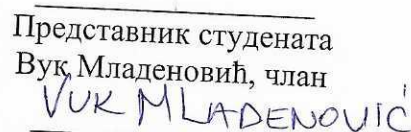 Представник студената
Вук Младеновић, члан
VUK MLADENOVIĆ